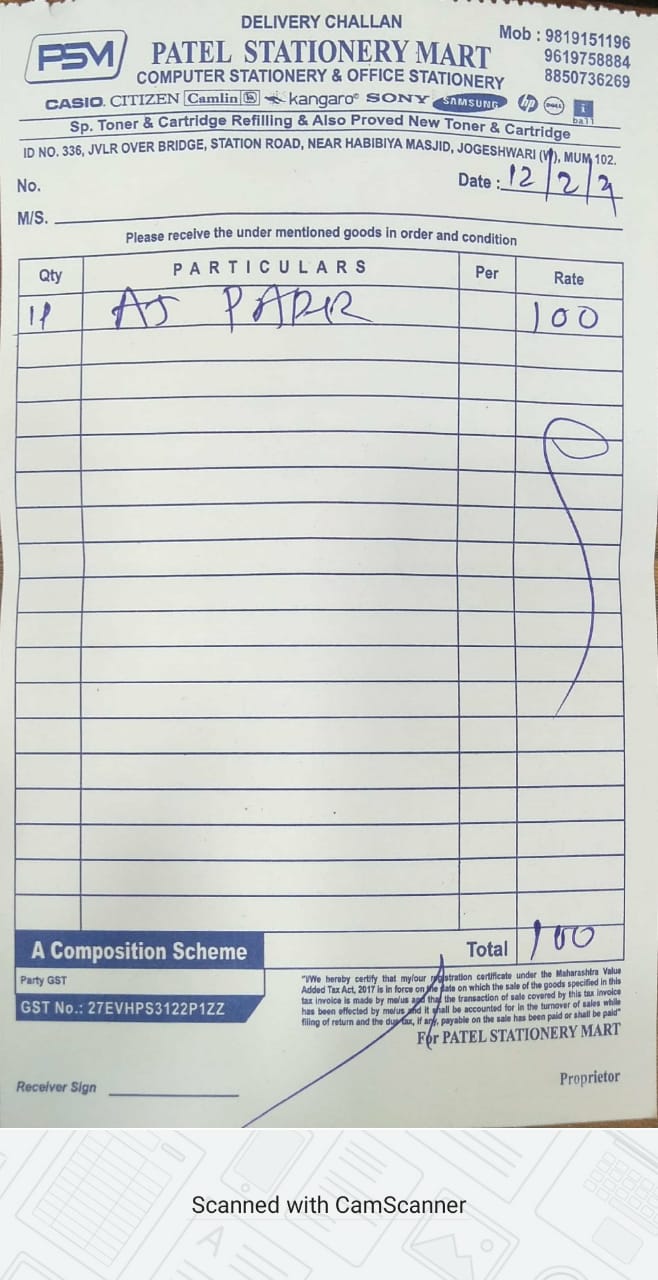 DELIVERY CHALLAN
Mob : 9819151196
9619758884
8850736269
PSM
PATEL STATIONERY MART
COMPUTER STATIONERY & OFFICE STATIONERY
CASIO. CITIZEN Camlin kangaro® SONY SAMSUNG hp DELL i ball
Sp. Toner & Cartridge Refilling & Also Proved New Toner & Cartridge
ID NO. 336, JVLR OVER BRIDGE, STATION ROAD, NEAR HABIBIYA MASJID, JOGESHWARI (W), MUM 102.
No.
Date : 12/2/2
M/S.
Please receive the under mentioned goods in order and condition
Qty PARTICULARS Per Rate
100
Total 100
A Composition Scheme
Party GST
GST No.: 27EVHPS3122P1ZZ
"I/We hereby certify that my/our registration certificate under the Maharashtra Value
Added Tax Act, 2017 is in force on the date on which the sale of the goods specified in this
tax invoice is made by me/us and that the transaction of sale covered by this tax invoice
has been effected by me/us and it shall be accounted for in the turnover of sales while
filing of return and the due tax, if any, payable on the sale has been paid or shall be paid"
For PATEL STATIONERY MART
Proprietor
Receiver Sign
Scanned with CamScanner